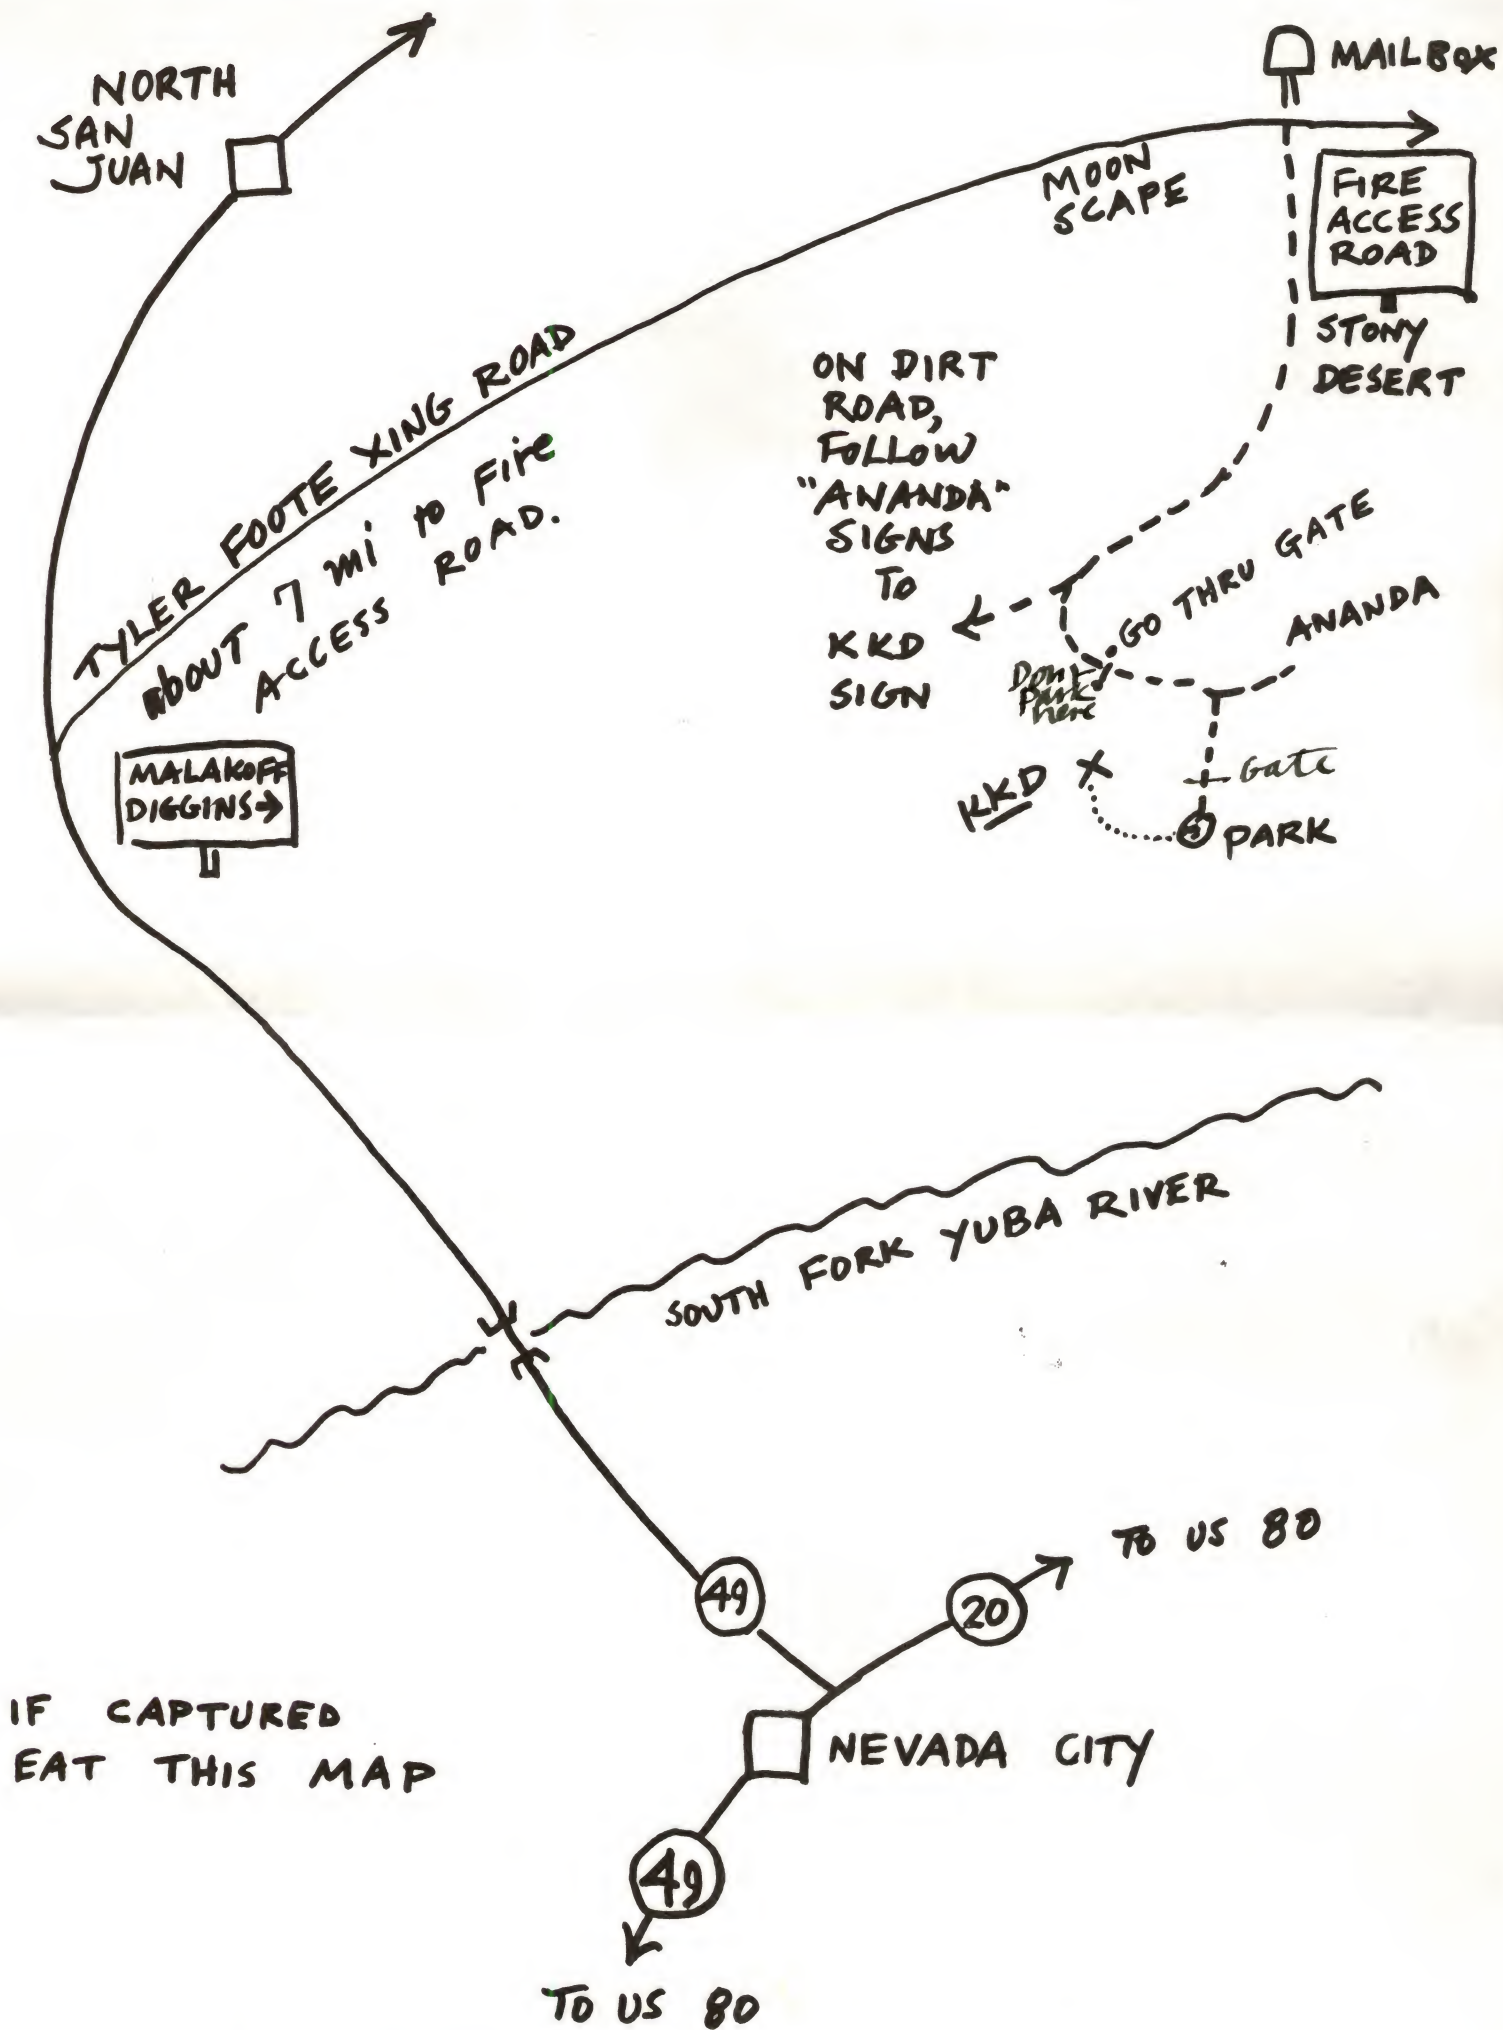 NORTH
SAN
JUAN
MAILBOX
MOON
SCAPE
FIRE
ACCESS
ROAD
STONY
DESERT
TYLER FOOTE XING ROAD
about 7 mi to Fire
ACCESS ROAD.
ON DIRT
ROAD,
FOLLOW
"ANANDA"
SIGNS
TO
KKD
SIGN
GO THRU GATE
ANANDA
Dont
park
here
Gate
KKD X
PARK
MALAKOFF
DIGGINS→
SOUTH FORK YUBA RIVER
TO US 80
49
20
IF CAPTURED
EAT THIS MAP
NEVADA CITY
49
TO US 80